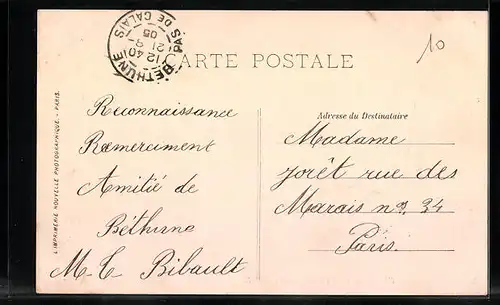 BÉTHUNE
PAS DE CALAIS
12 40
21 9
05
CARTE POSTALE
10
L'IMPRIMERIE NOUVELLE PHOTOGRAPHIQUE. - PARIS.
Reconnaissance
Remerciment
Amitié de
Béthune
M. C. Ribault
Adresse du Destinataire
Madame
Jorêt rue des
Marais nº 34
Paris.